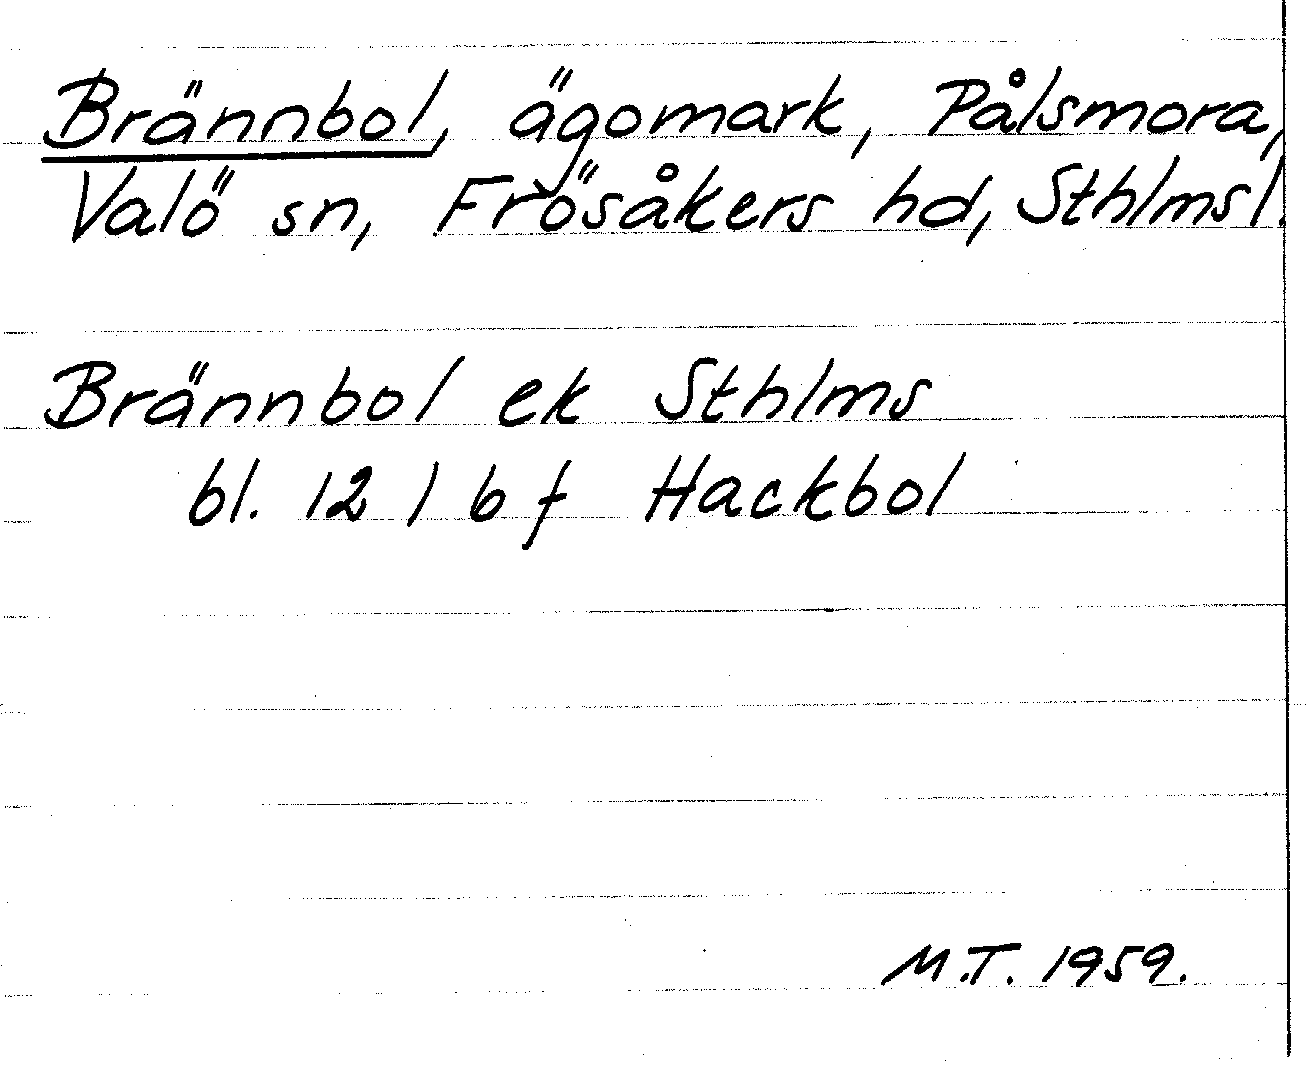 Brännbol, ägomark, Pålsmora,
Valö sn, Frösåkers hd, Sthlms l.
Brännbol ek Sthlms
bl. 12 1 b f Hackbol
M.T. 1959.